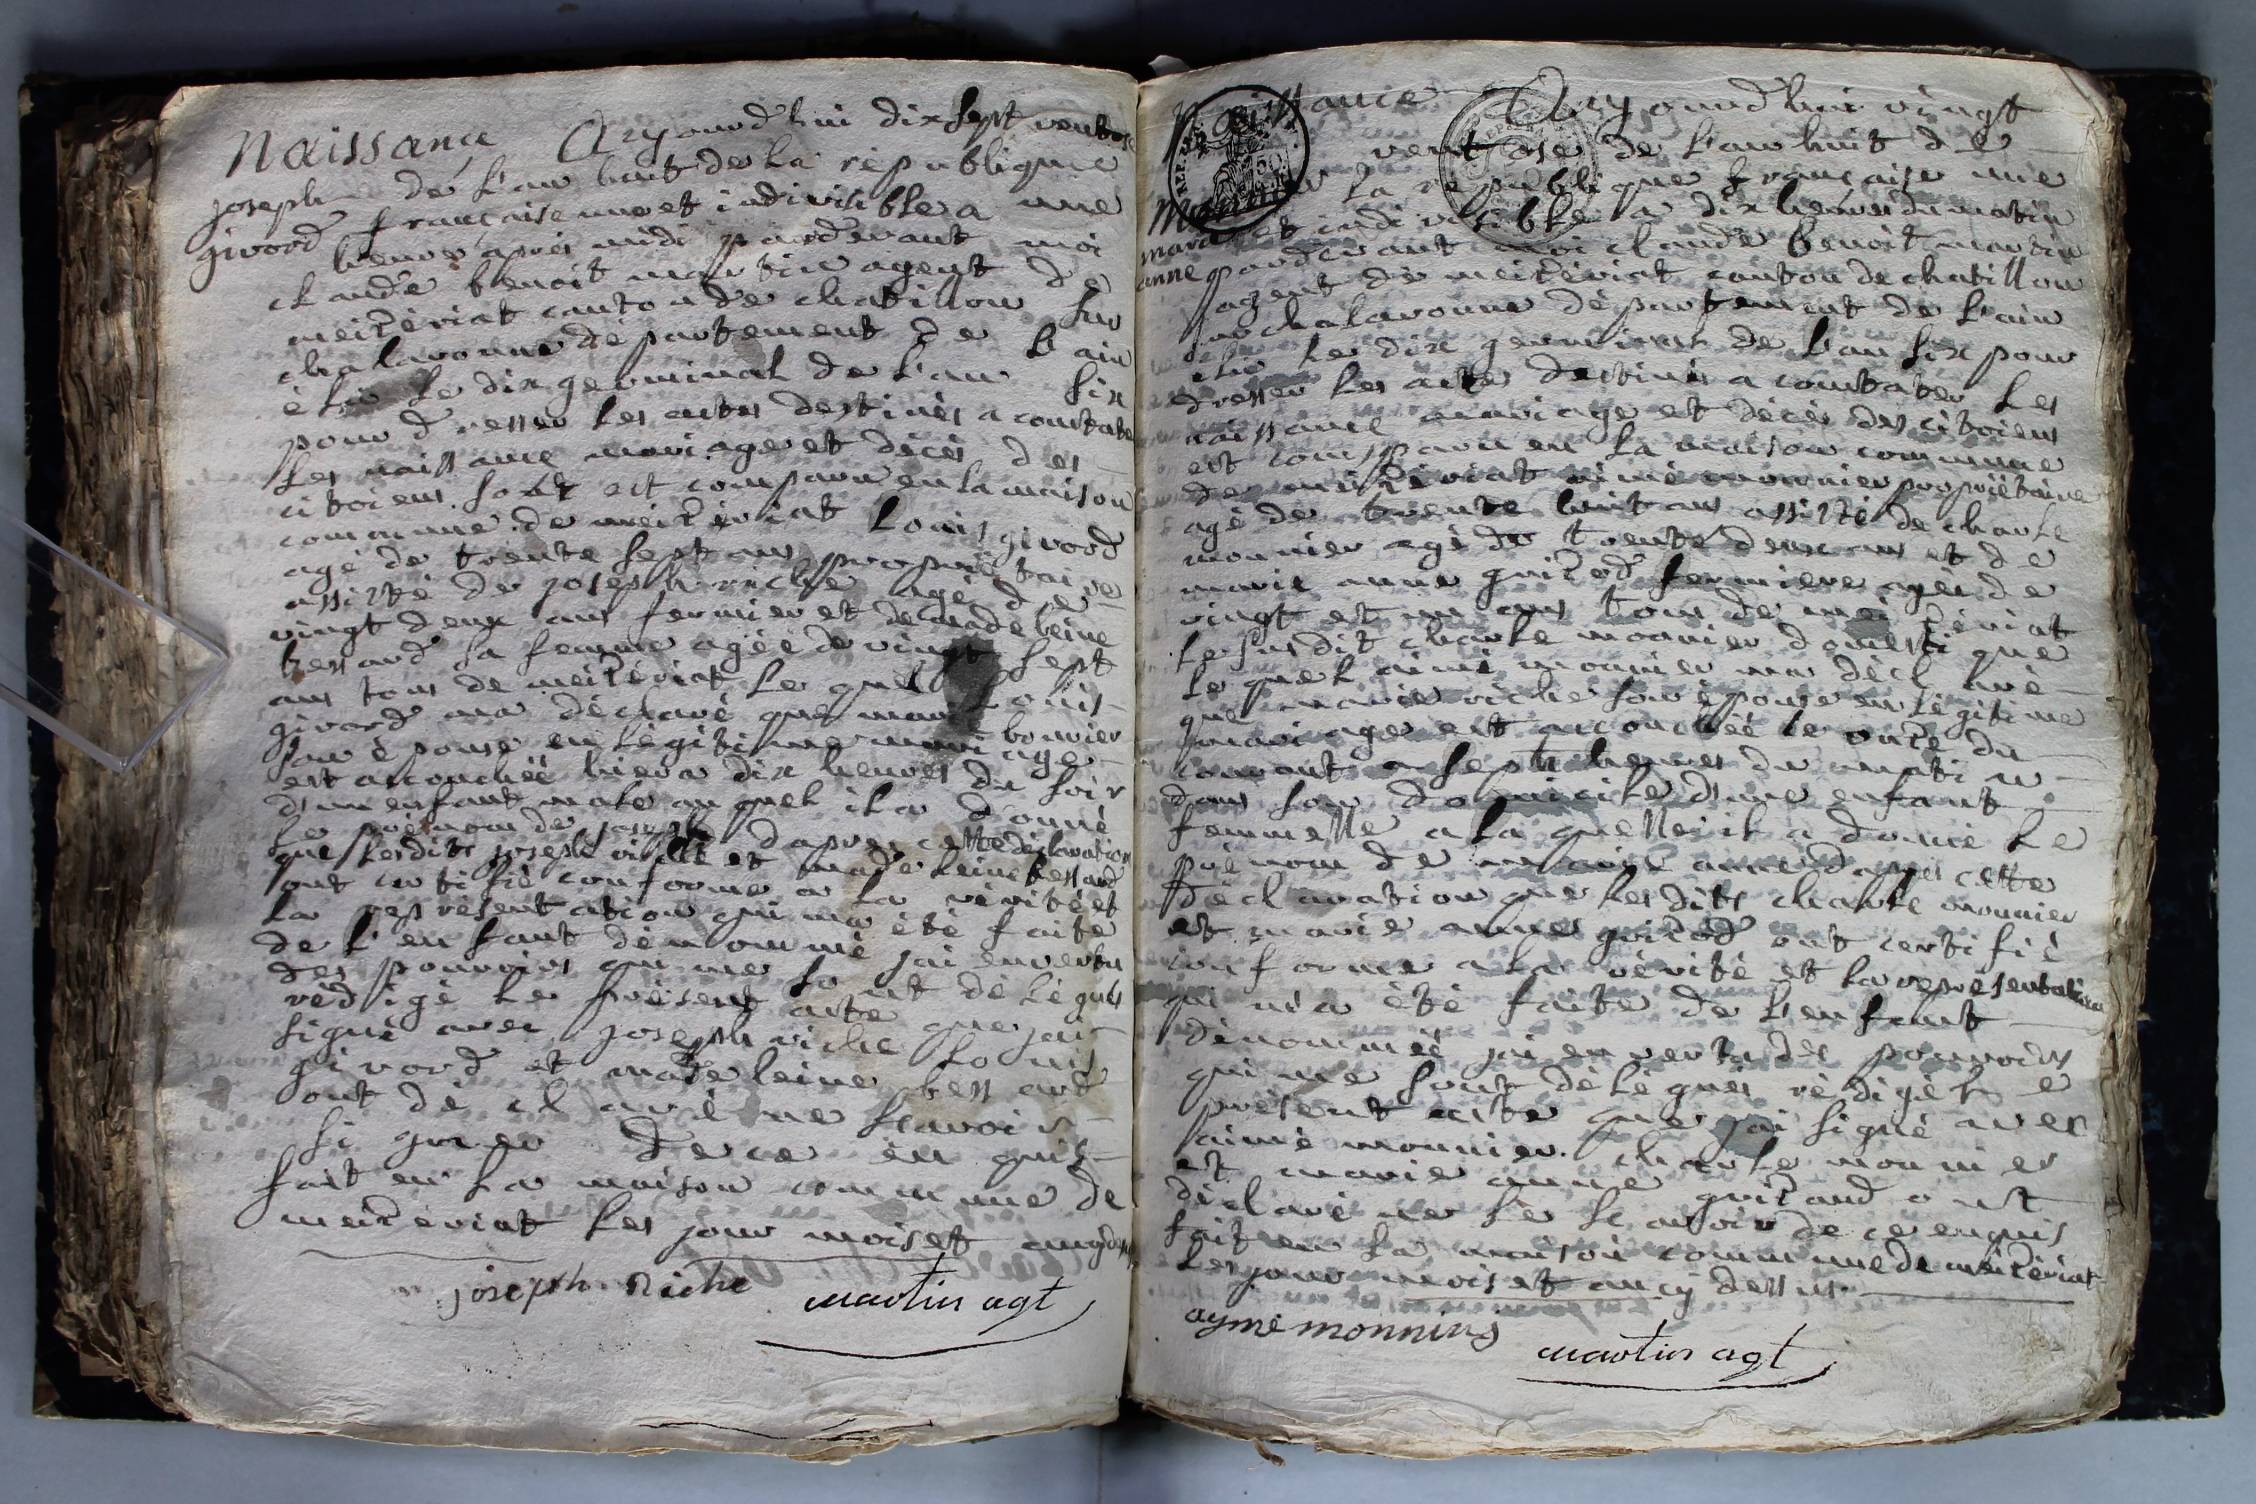 Naissance Aujourd'hui dix sept ventose
joseph de l'an huit de la république
givord française une et indivisible a une
heure après midi pardevant moi
claude benoit martin agent de
meizériat canton de chatillon sur
chalaronne département de l'ain
élu le dix germinal de l'an six
pour dresser les actes destinés a constater
les naissance mariage et décès des
citoiens soat est comparu en la maison
commune de meizériat Louis givord
agé de trente sept ans propriétaire
assisté de joseph riche agé de
vingt deux ans fermier et de madeleine
bessard sa femme agée de vingt sept
ans tous de meizériat le quel Louis
givord ma déclaré que marie bouvier
son épouse en legitime mariage
est accouchée hier a dix heures du soir
d'un enfant male au quel il a donné
le prénom de joseph daprès cette déclaration
que lesdits joseph riche et madeleine bessard
ont certifié conforme a la vérité et
la représentation qui ma été faite
de l'enfant dénommé jai en vertu
des pouvoirs qui me sont délégués
rédigé le présent acte que jai
signé avec joseph riche Louis
givord et madeleine bessard
ont déclaré ne scavoir
signer de ce enquis
fait en la maison commune de
meizériat les jour mois et an cy dessus
joseph Riche martin agt
Naissance Aujourd'hui vingt
ventose de l'an huit de
la république française une
et indivisible a dix heures du matin
anne pardevant moi claude benoit martin
agent de meizériat canton de chatillon
sur chalaronne département de l'ain
elu le dix germinal de l'an six pour
dresser les actes destinés a constater les
naissance mariage et décès des citoiens
est comparu en la maison commune
de meizériat aimé monnier propriétaire
agé de trente huit ans assisté de charle
monnier agé de trente deux ans et de
marie anne fermiere agée de
vingt et un ans tous de meizériat
le susdit charle monnier domestique
le quel aimé monnier ma déclaré
que marie riche son épouse en légitime
mariage est accouchée le onze du
courant a sept heures du matin
dans son domicile d'une enfant
femmelle a la quelle il a donné le
prénom de marie anne daprès cette
déclaration que lesdits charle monnier
et marie anne ont certifié
conforme a la vérité et la representation
qui m'a été faite de l'enfant
dénommée jai en vertu des pouvoirs
qui me sont délégués rédigé le
présent acte que jai signé avec
aimé monnier. charle monnier
et marie anne ont
déclaré ne le scavoir de ce enquis
fait en la maison commune de meizériat
les jour mois et an cy dessus
aymé monnius martin agt